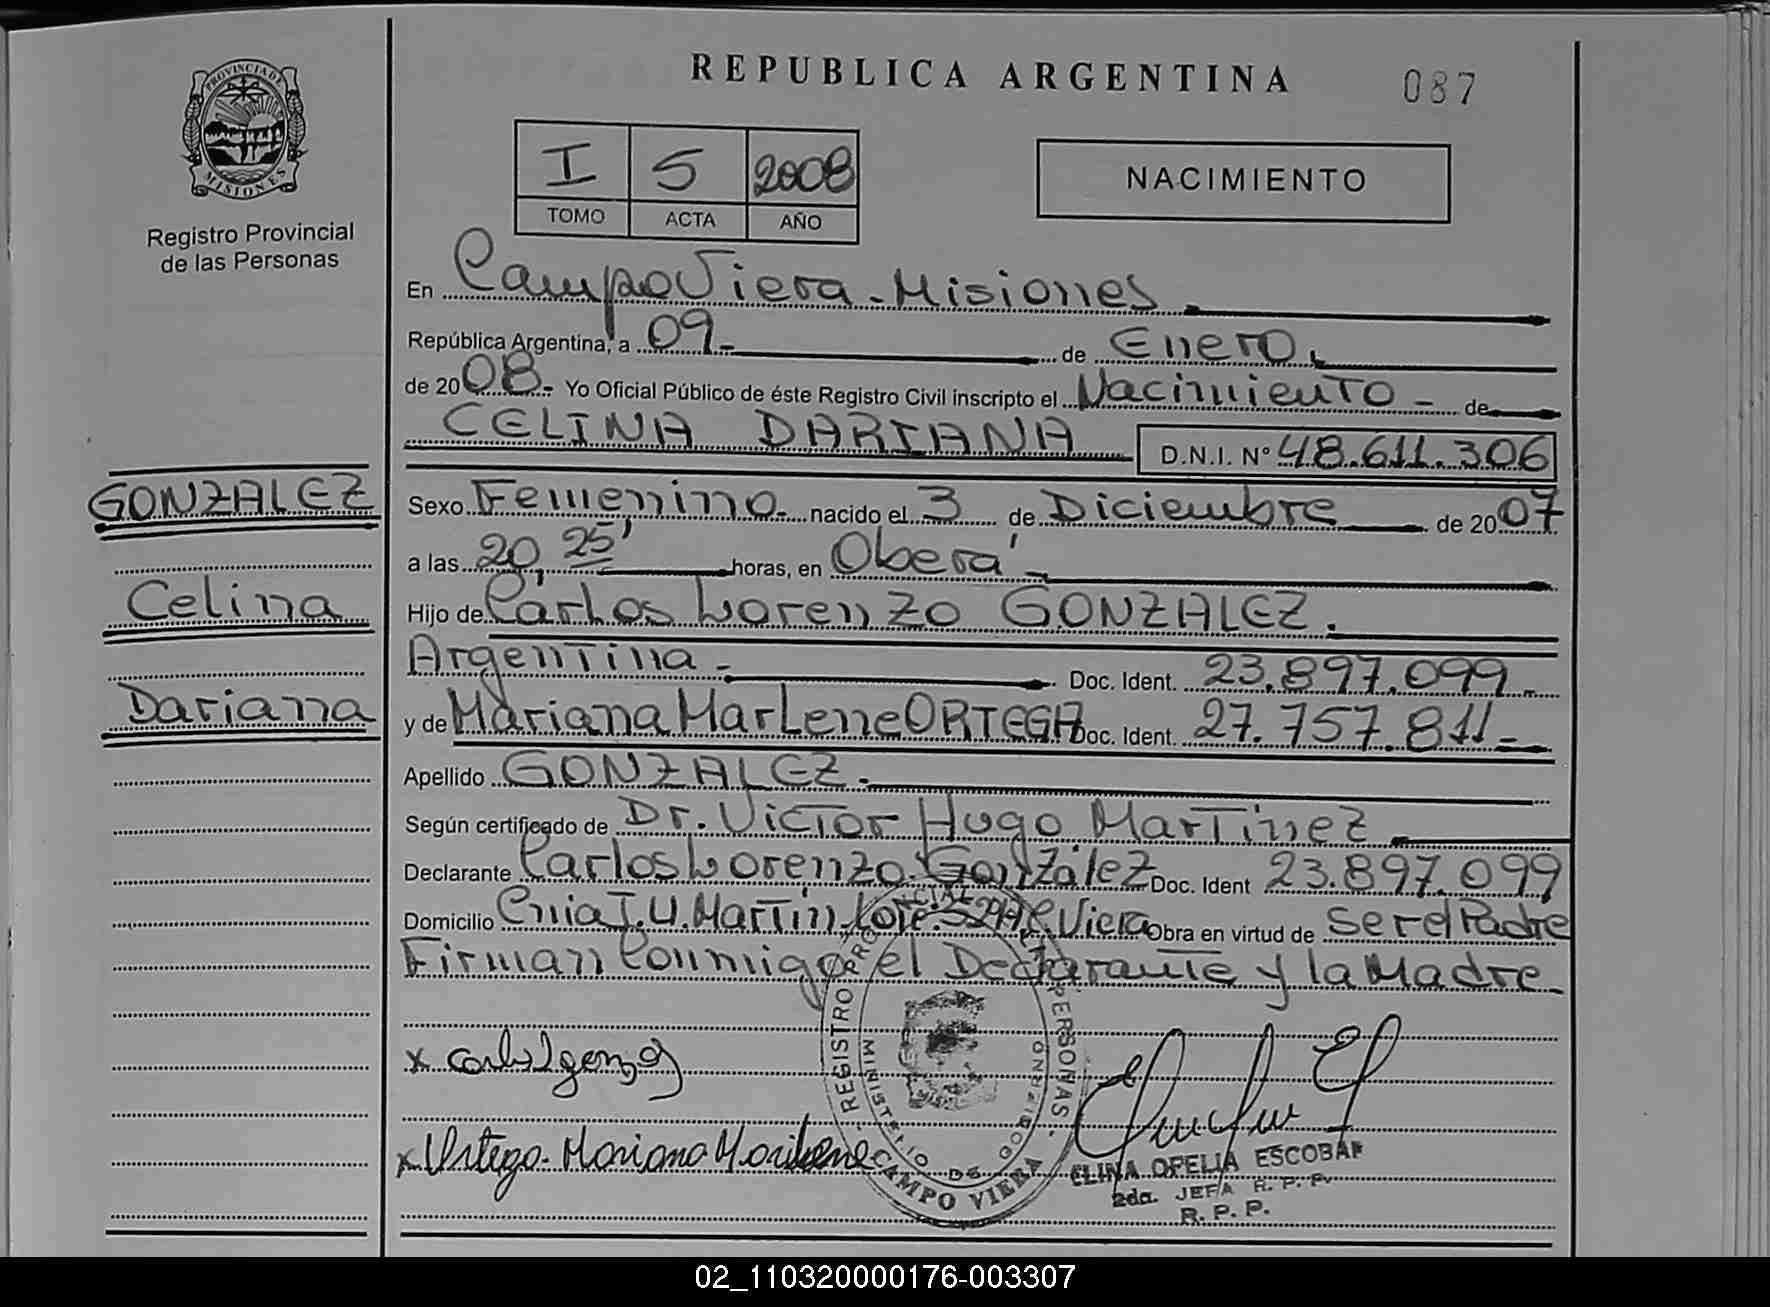 REPUBLICA ARGENTINA
087
PROVINCIA DE
MISIONES
Registro Provincial
de las Personas
I 5 2008
TOMO ACTA AÑO
NACIMIENTO
En Campo Viera - Misiones.
República Argentina, a 09.- de Enero.
de 2008.- Yo Oficial Público de éste Registro Civil inscripto el Nacimiento - de
CELINA DARIANA D.N.I. N° 48.611.306
GONZALEZ
Celina
Dariana
Sexo Femenino. nacido el 3 de Diciembre de 2007
a las 20, 25' horas, en Oberá -
Hijo de Carlos Lorenzo GONZALEZ.
Argentina - Doc. Ident. 23.897.099-
y de Mariana Marlene ORTEGA Doc. Ident. 27.757.811-
Apellido GONZALEZ.
Según certificado de Dr. Victor Hugo Martinez
Declarante Carlos Lorenzo González Doc. Ident 23.897.099
Domicilio Cnia J.U. Martín Viera Obra en virtud de Ser el Padre
Firman Conmigo el Declarante y la Madre
REGISTRO PERSONAS
MINISTERIO DE GOBIERNO
CAMPO VIERA
x Ortega Mariana Marlene
ELINA OFELIA ESCOBAR
2da. JEFA R. P. P.
R. P. P.
02_110320000176-003307